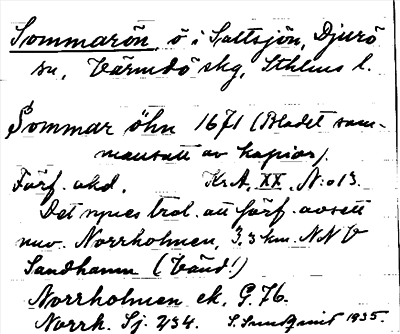 Sommarön ö i Saltsjön, Djurö
sn, Värmdö skg, Sthlms l.
Sommar öhn 1671 (Bladet sam-
mansatt av kopior).
Förf. okd. Kr.A, XX, N:o 13.
Det synes trol. att förf. avsett
nuv. Norrholmen, 3,3 km. NNV
Sandhamn (Vänd!)
Norrholmen ek. G. 76.
Norrh. Sj. 234. S. Sundquist 1935.